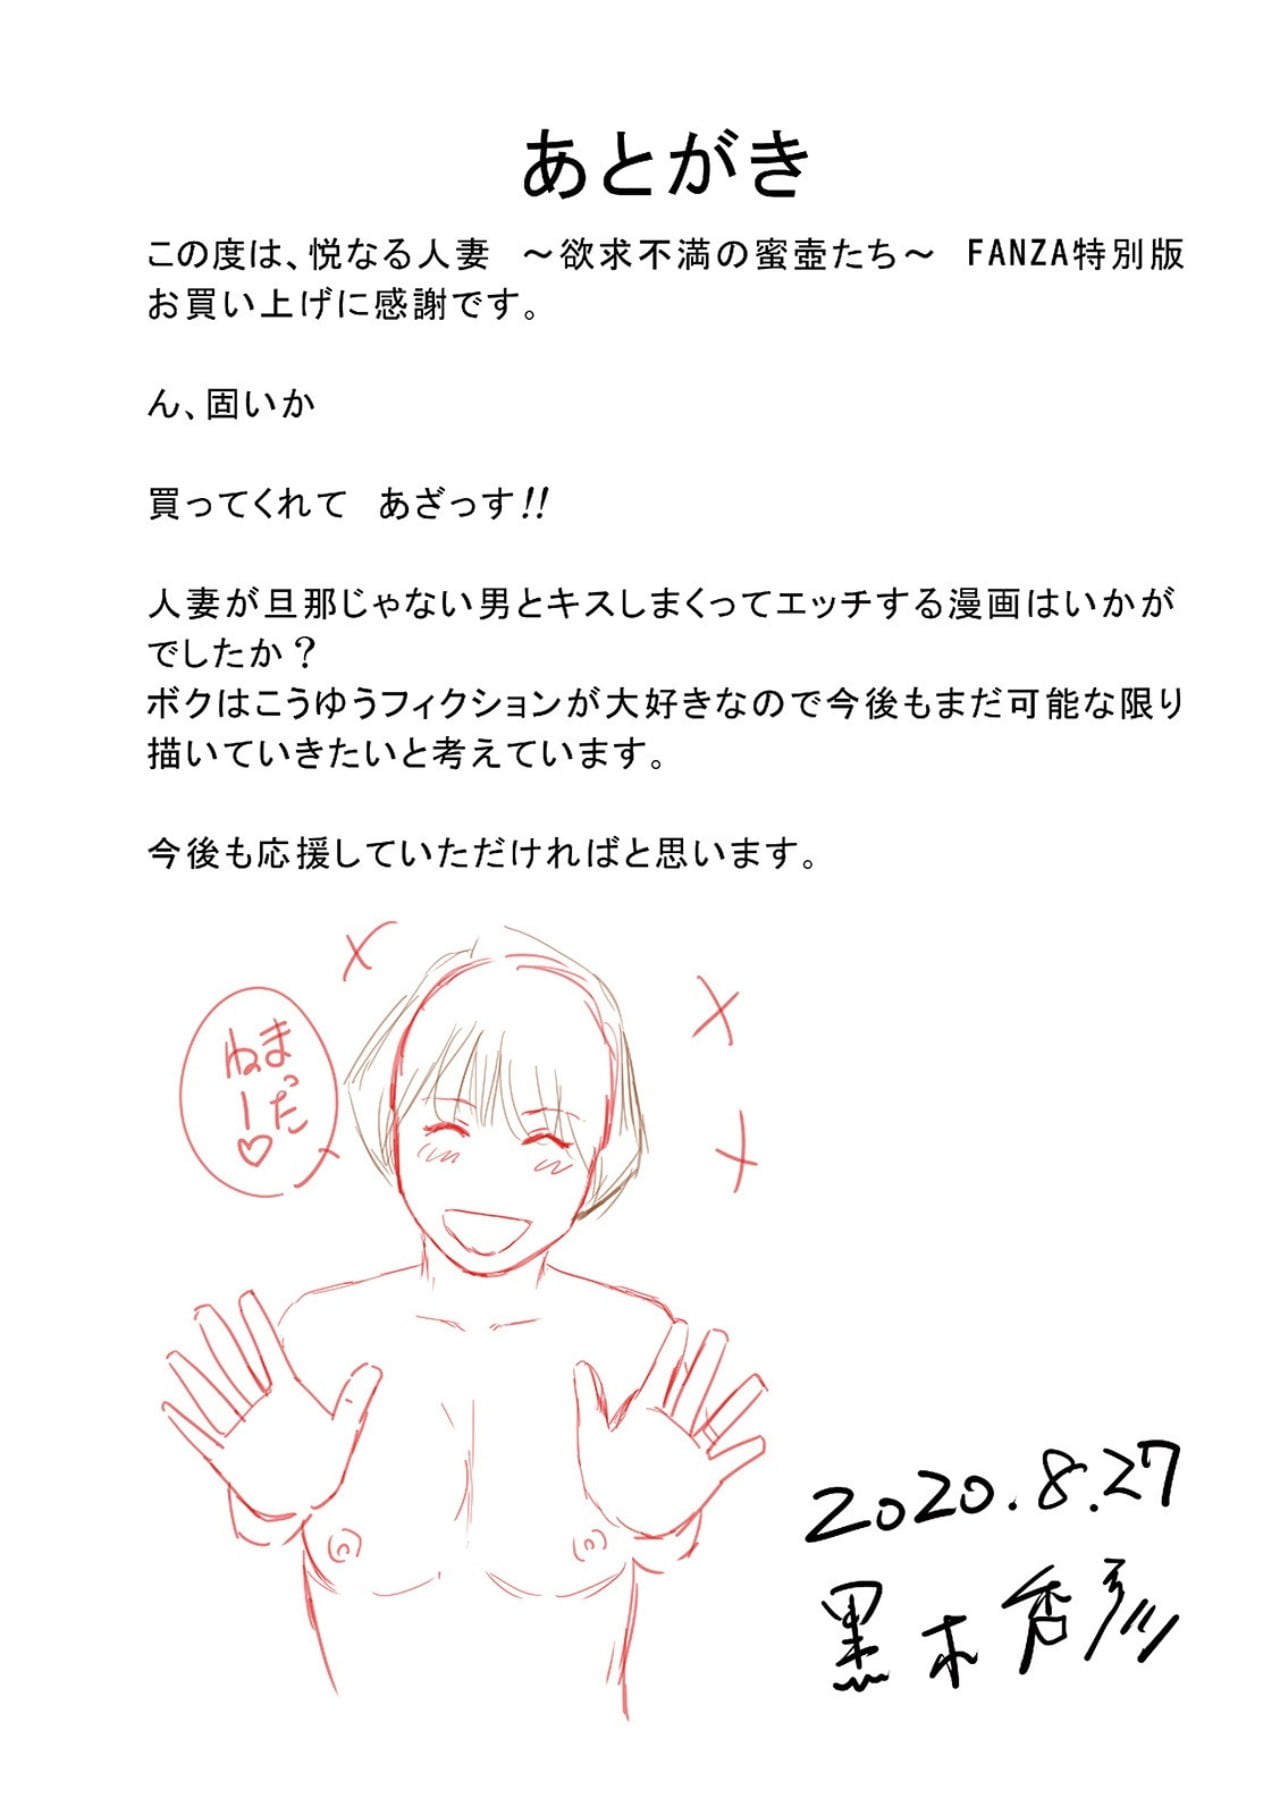 あとがき
この度は、悦なる人妻　～欲求不満の蜜壺たち～　FANZA特別版
お買い上げに感謝です。
ん、固いか
買ってくれて　あざっす!!
人妻が旦那じゃない男とキスしまくってエッチする漫画はいかが
でしたか？
ボクはこうゆうフィクションが大好きなので今後もまだ可能な限り
描いていきたいと考えています。
今後も応援していただければと思います。
まった
ねー♡
2020.8.27
黒木秀彦